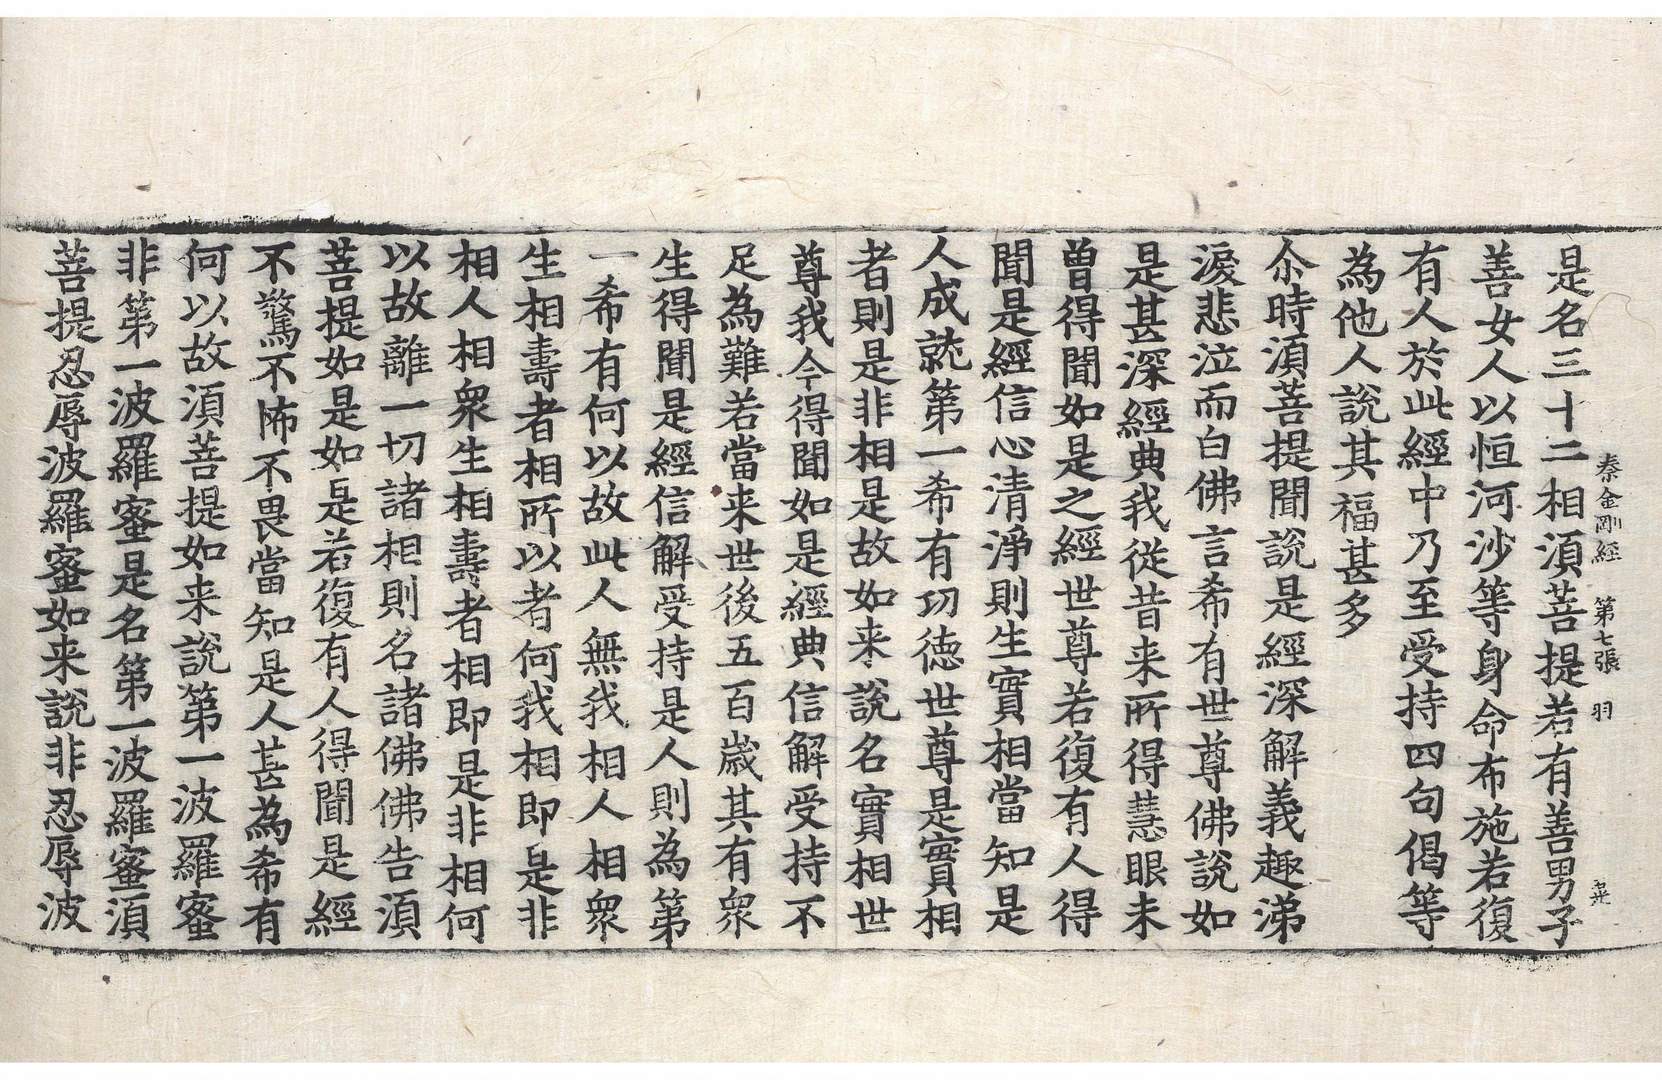 秦金剛經 第七張 羽
是名三十二相湏菩提若有善男子
善女人以恒河沙等身命布施若復
有人於此經中乃至受持四句偈等
為他人說其福甚多
尒時湏菩提聞說是經深解義趣涕
淚悲泣而白佛言希有世尊佛說如
是甚深經典我從昔来所得慧眼未
曾得聞如是之經世尊若復有人得
聞是經信心清淨則生實相當知是
人成就第一希有功德世尊是實相
者則是非相是故如来說名實相世
尊我今得聞如是經典信解受持不
足為難若當来世後五百歲其有衆
生得聞是經信解受持是人則為第
一希有何以故此人無我相人相衆
生相壽者相所以者何我相即是非
相人相衆生相壽者相即是非相何
以故離一切諸相則名諸佛佛告湏
菩提如是如是若復有人得聞是經
不驚不怖不畏當知是人甚為希有
何以故湏菩提如来說第一波羅蜜
非第一波羅蜜是名第一波羅蜜湏
菩提忍辱波羅蜜如来說非忍辱波